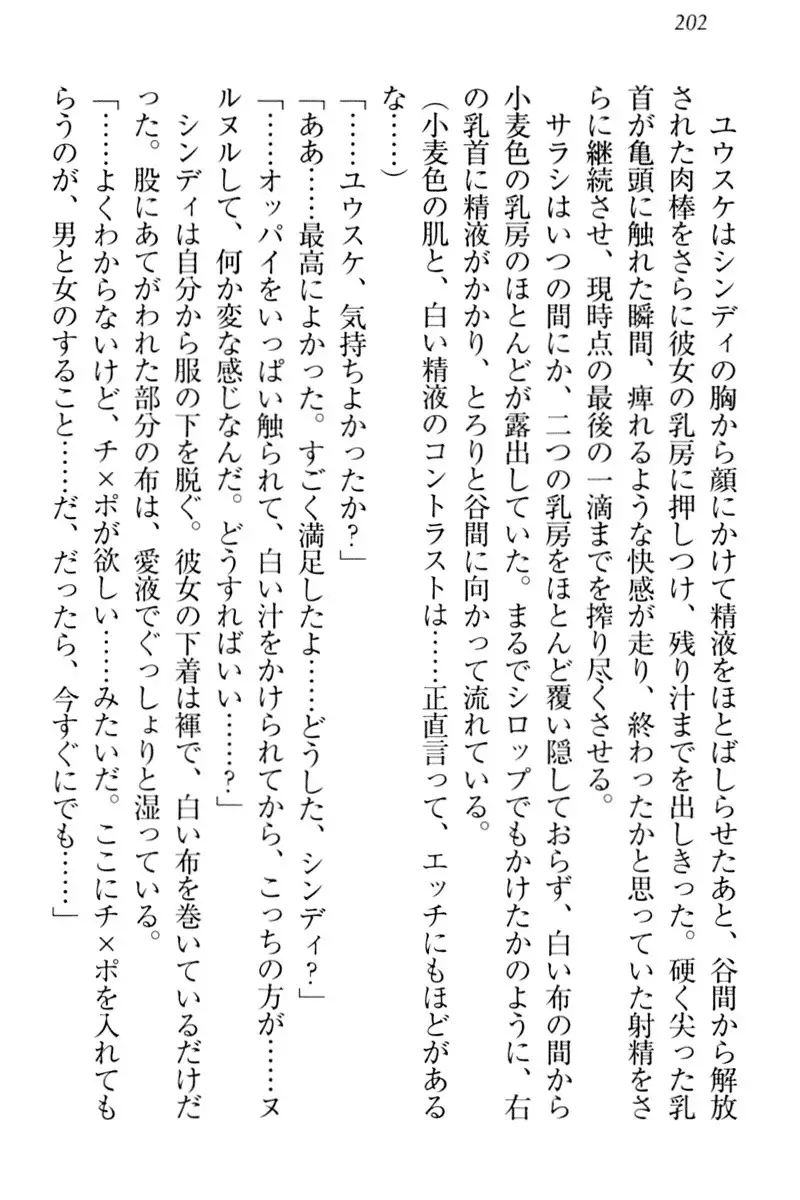 202
ユウスケはシンディの胸から顔にかけて精液をほとばしらせたあと、谷間から解放
された肉棒をさらに彼女の乳房に押しつけ、残り汁までを出しきった。硬く尖った乳
首が亀頭に触れた瞬間、痺れるような快感が走り、終わったかと思っていた射精をさ
らに継続させ、現時点の最後の一滴までを搾り尽くさせる。
サラシはいつの間にか、二つの乳房をほとんど覆い隠しておらず、白い布の間から
小麦色の乳房のほとんどが露出していた。まるでシロップでもかけたかのように、右
の乳首に精液がかかり、とろりと谷間に向かって流れている。
（小麦色の肌と、白い精液のコントラストは……正直言って、エッチにもほどがある
な……）
「……ユウスケ、気持ちよかったか？」
「ああ……最高によかった。すごく満足したよ……どうした、シンディ？」
「……オッパイをいっぱい触られて、白い汁をかけられてから、こっちの方が……ヌ
ルヌルして、何か変な感じなんだ。どうすればいい……？」
シンディは自分から服の下を脱ぐ。彼女の下着は褌で、白い布を巻いているだけだ
った。股にあてがわれた部分の布は、愛液でぐっしょりと湿っている。
「……よくわからないけど、チ×ポが欲しい……みたいだ。ここにチ×ポを入れても
らうのが、男と女のすること……だ、だったら、今すぐにでも……」